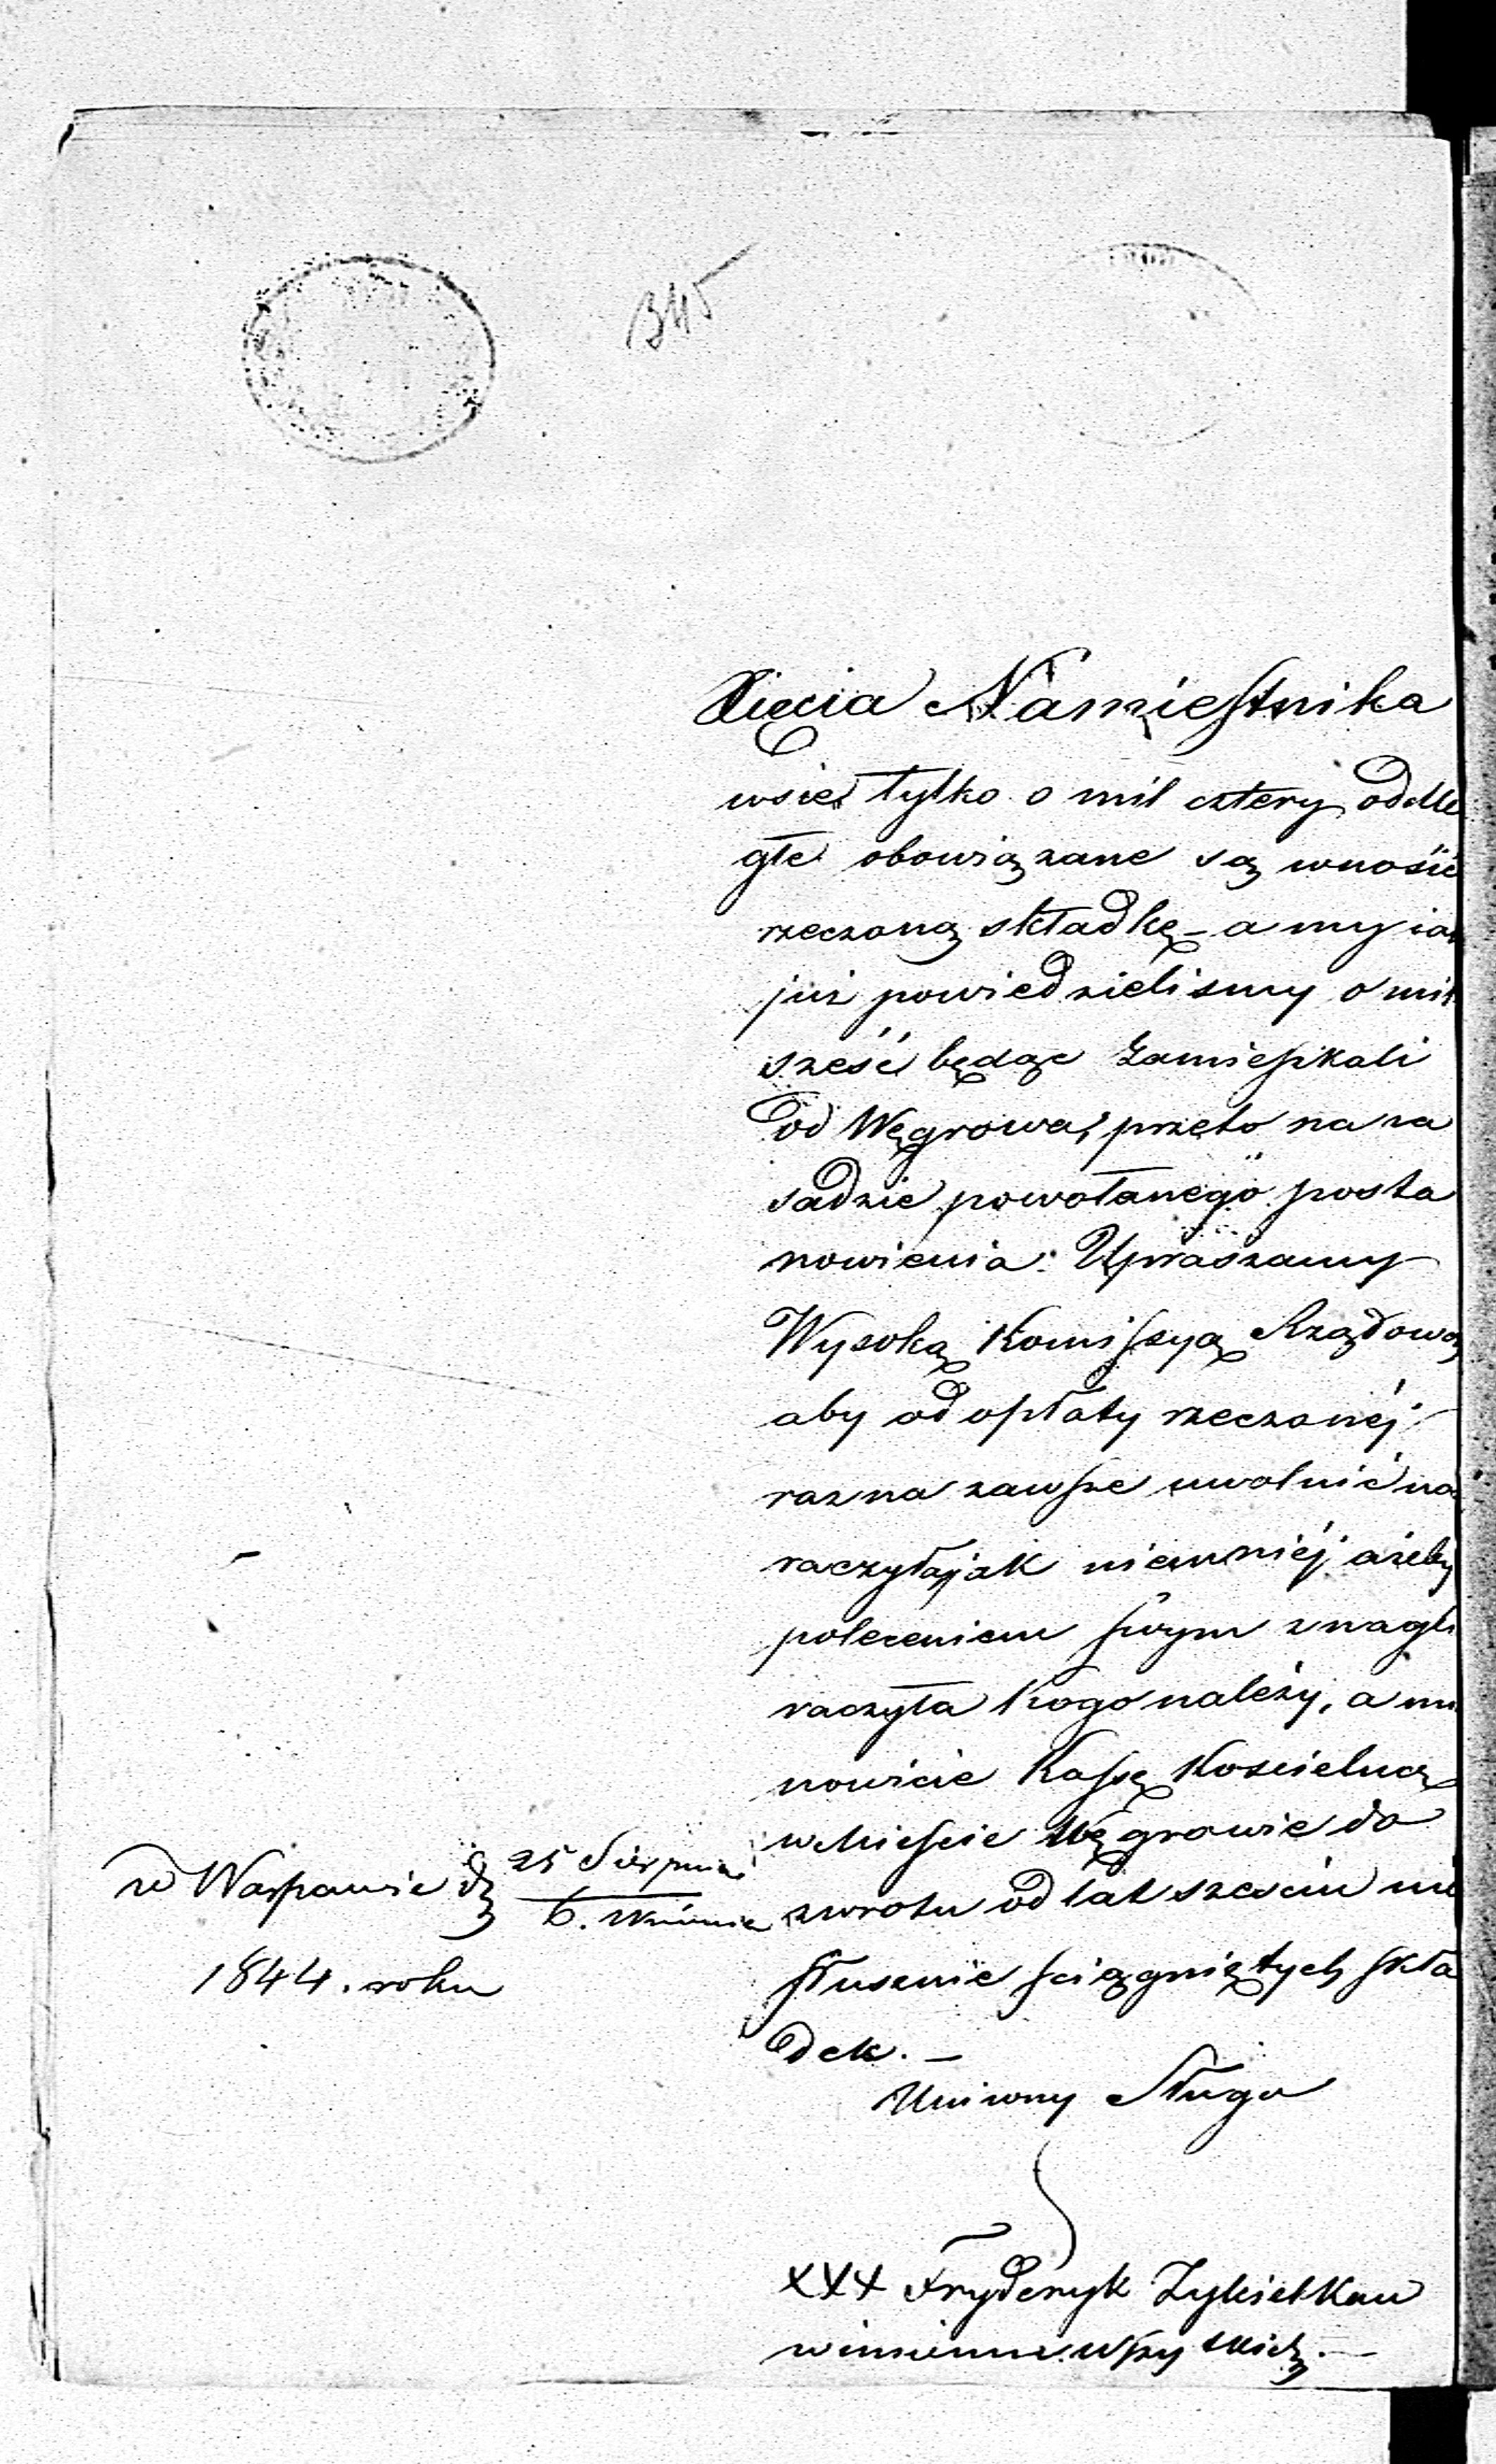 345
Xięcia Namiestnika
wsie tylko o mil cztery odle
głe obowiązane są wnosić
rzeczoną składkę - a my iak
już powiedzielismy o mil
sześć będąc zamieszkali
od Węgrowa, przeto na za
sadzie powołanego posta
nowienia: Upraszamy
Wysoką Komissyą Rządową
aby od opłaty rzeczonéj
raz na zawsze uwolnić na
raczyła, jak niemniéj ażeby
poleceniem swym znagli
raczyła kogo należy, a mi
nowicie Kassę Kościelną
w Mieście Węgrowie do
zwrotu od lat sześciu nie
słusznie sciągniętych skła
dek. —
Uniżony Sługa
w Warszawie d. 25 Sierpnia
6. Września
1844. roku
XXX Fryderyk
w imieniu wszystkich. —